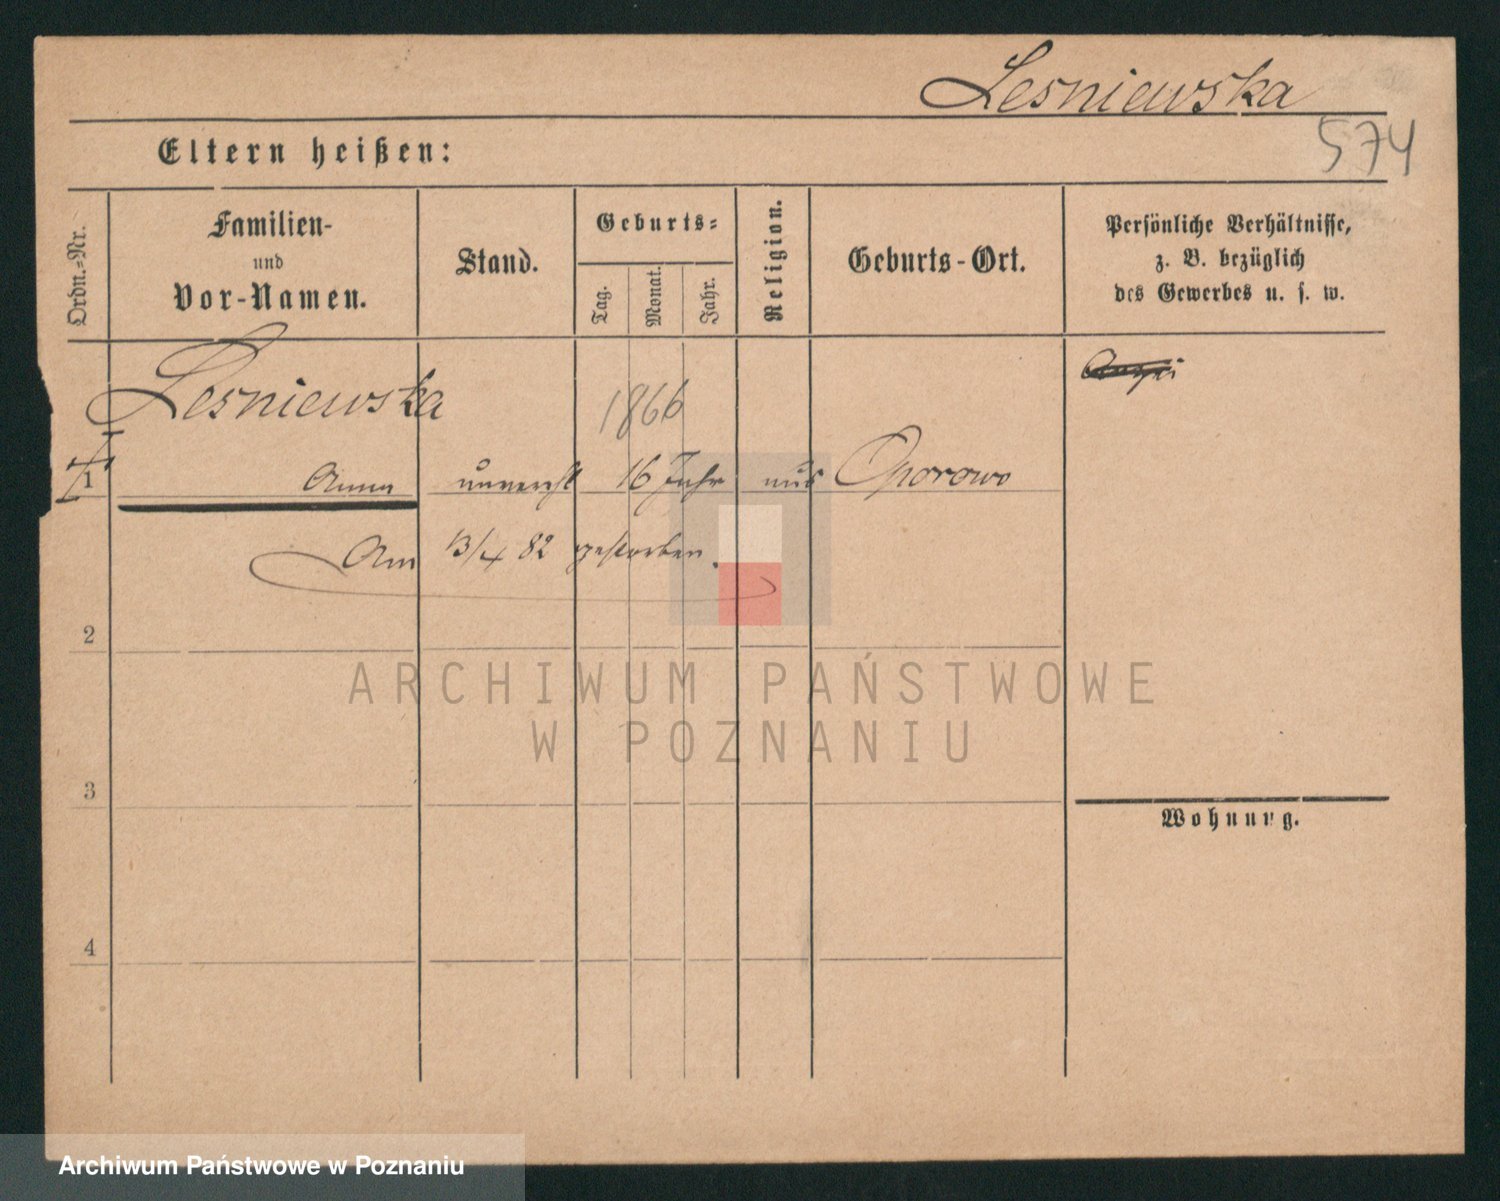 Lesniewska
574
Eltern heißen:
Ordn.-Nr.
Familien-
und
Vor-Namen.
Stand.
Geburts-
Tag.
Monat.
Jahr.
Religion.
Geburts-Ort.
Persönliche Verhältnisse,
z. B. bezüglich
des Gewerbes u. s. w.
Lesniewska
1866
1 Anna unvereh 16 Jahr aus Oporowo
Am 13/4 82 gestorben.
2
ARCHIWUM PAŃSTWOWE
W POZNANIU
3
Wohnung.
4
Archiwum Państwowe w Poznaniu